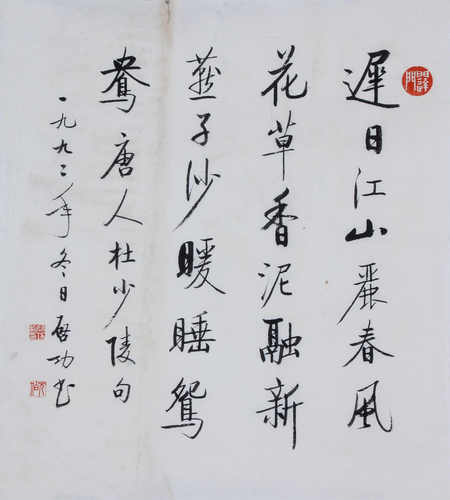 遲日江山麗春風
花草香泥融新
燕子沙暖睡鴛
鴦唐人杜少陵句
一九九二年冬日启功书